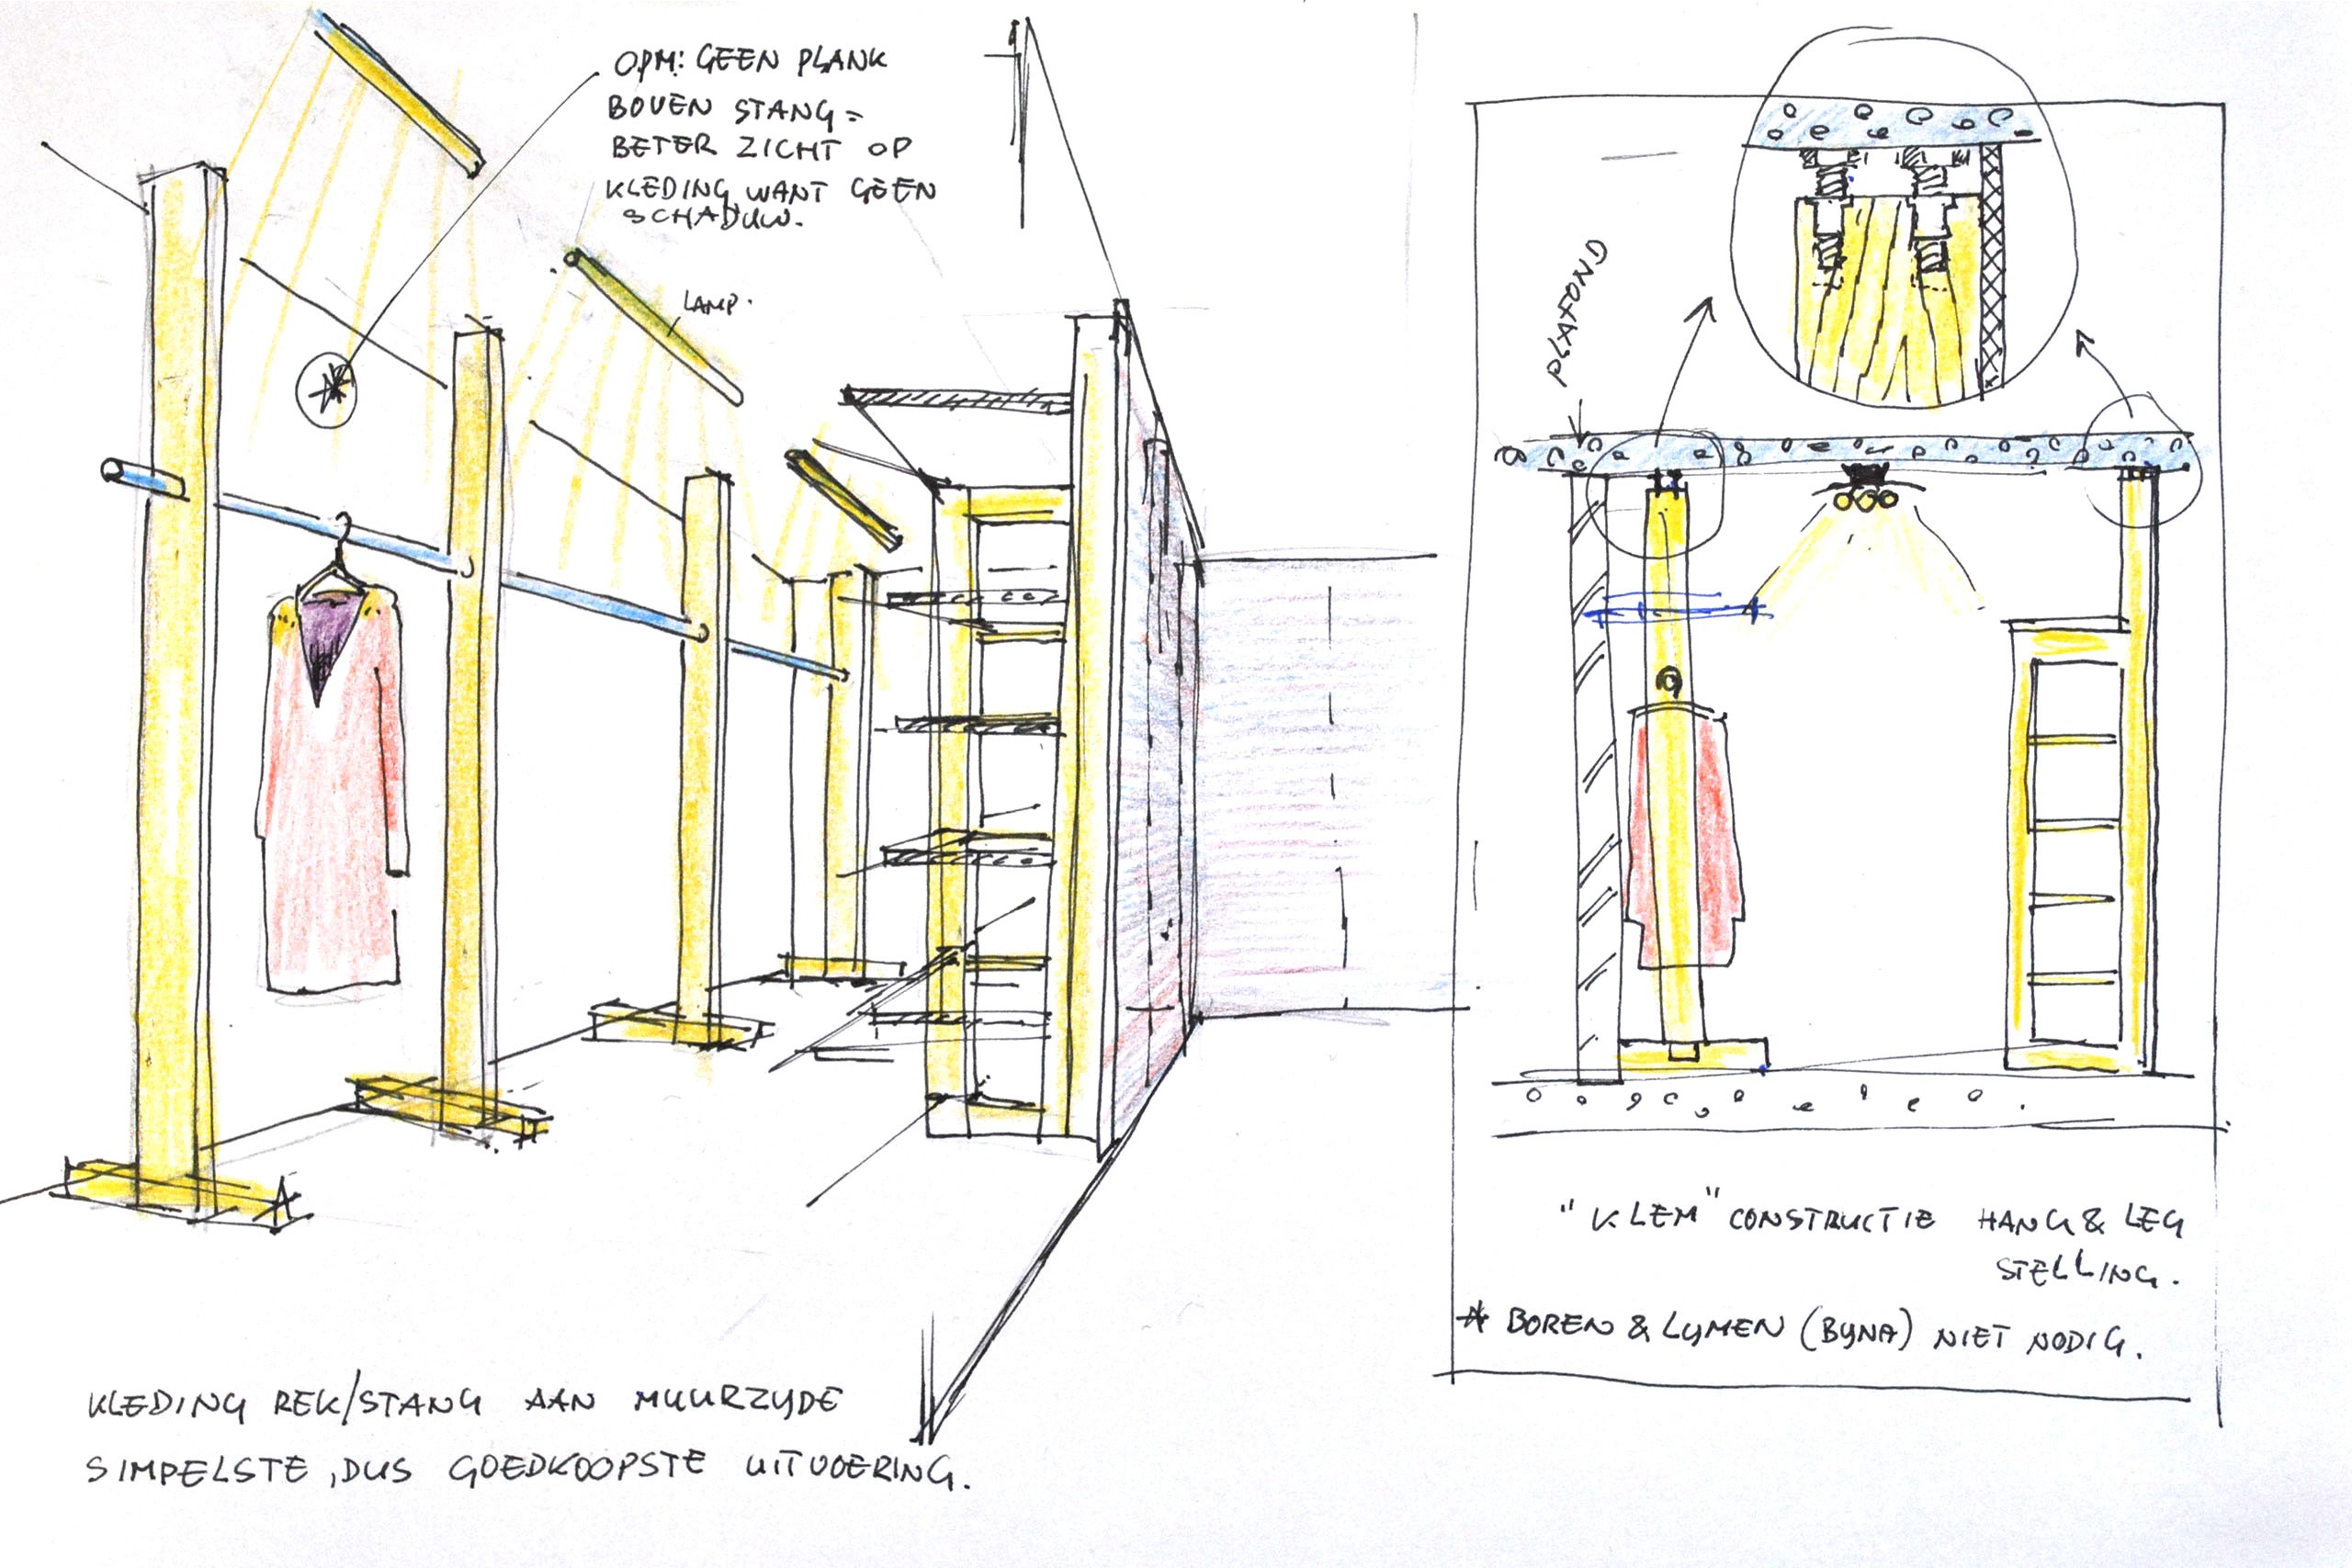 OPM: GEEN PLANK
BOVEN STANG =
BETER ZICHT OP
KLEDING WANT GEEN
SCHADUW.
LAMP.
PLAFOND
"KLEM" CONSTRUCTIE HANG & LEG
STELLING.
* BOREN & LYMEN (BYNA) NIET NODIG.
KLEDING REK/STANG AAN MUURZYDE
SIMPELSTE, DUS GOEDKOOPSTE UITVOERING.